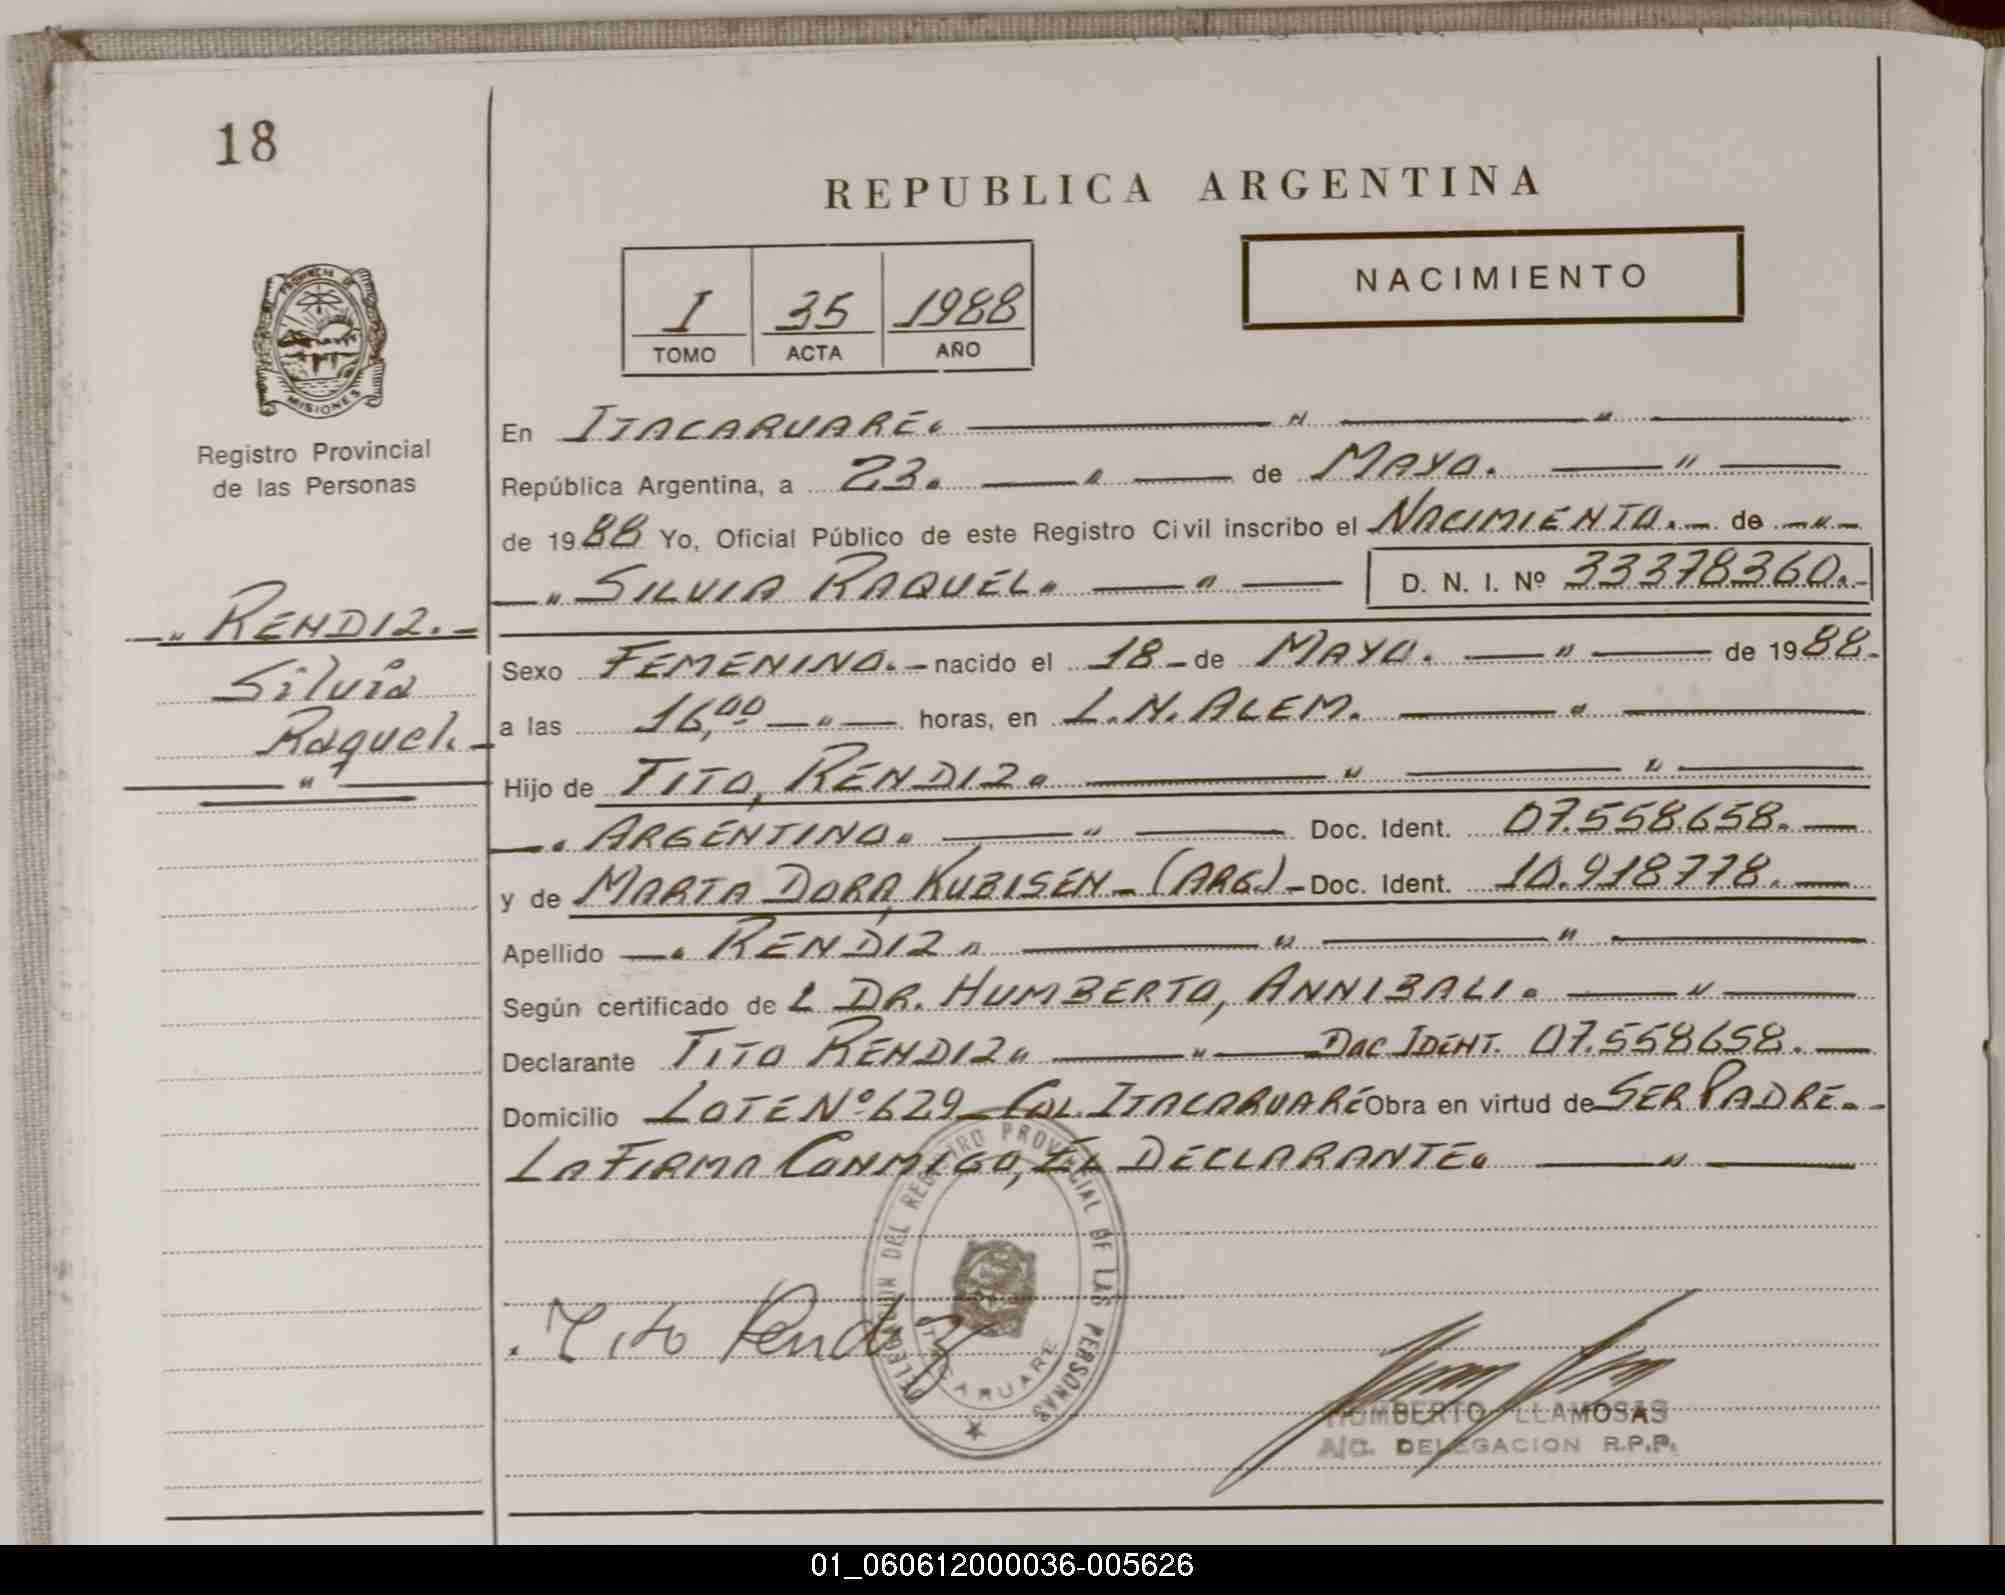 18
REPUBLICA ARGENTINA
NACIMIENTO
I 35 1988
TOMO ACTA AÑO
PROVINCIA DE
MISIONES
Registro Provincial
de las Personas
RENDIZ.
Silvia
Raquel.
En ITACARUARE.
República Argentina, a 23. de MAYO.
de 1988 Yo, Oficial Público de este Registro Civil inscribo el NACIMIENTO. de
SILVIA RAQUEL. D. N. I. Nº 33378360.
Sexo FEMENINO. nacido el 18 de MAYO. de 1988.
a las 16,00 horas, en L.N. ALEM.
Hijo de TITO, RENDIZ.
ARGENTINO. Doc. Ident. 07.558.658.
y de MARTA DORA, KUBISEN (ARG.) Doc. Ident. 10.918.778.
Apellido RENDIZ
Según certificado de L DR. HUMBERTO, ANNIBALI.
Declarante TITO RENDIZ DOC IDENT. 07.558658.
Domicilio LOTE Nº 629 COL. ITACARUARÉ Obra en virtud de SER PADRE.
LA FIRMA CONMIGO, EL DECLARANTE.
DELEGACION DEL REGISTRO PROVINCIAL DE LAS PERSONAS
ITACARUARE
Tito Rendiz
HUMBERTO LLAMOSAS
A/C. DELEGACION R.P.P.
01_060612000036-005626